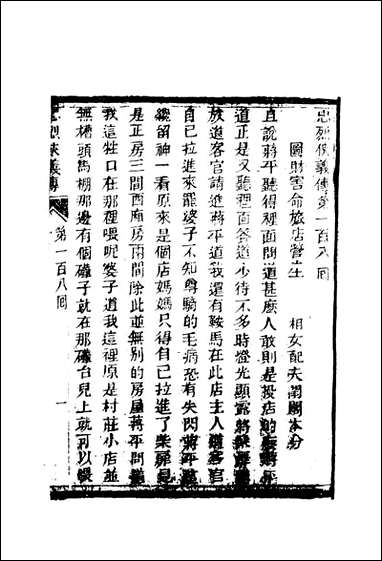 忠烈俠義傳第一百八回
圖財害命旅店營生　相女配夫閨閣本分
且說蔣平聽得裡面問道甚麼人敢則是投店的麼蔣平
道正是又聽裡面答道少待不多時燈光顯露將柴扉
放道客官請進蔣平道我還有鞍馬在此店主人道客官
自己拉進來罷婆子不知尊騎的毛病恐有失閃蔣平
纔留神一看原來是個店媽媽只得自己拉進了柴扉見
是正房三間西廂房兩間除此並無別的房屋蔣平問道
我這牲口在那裡喂呢婆子道我這裡原是村莊小店並
無槽頭馬棚那邊有個碾子就在那碾台兒上就可以喂
烈俠義傳
第一百八回
一